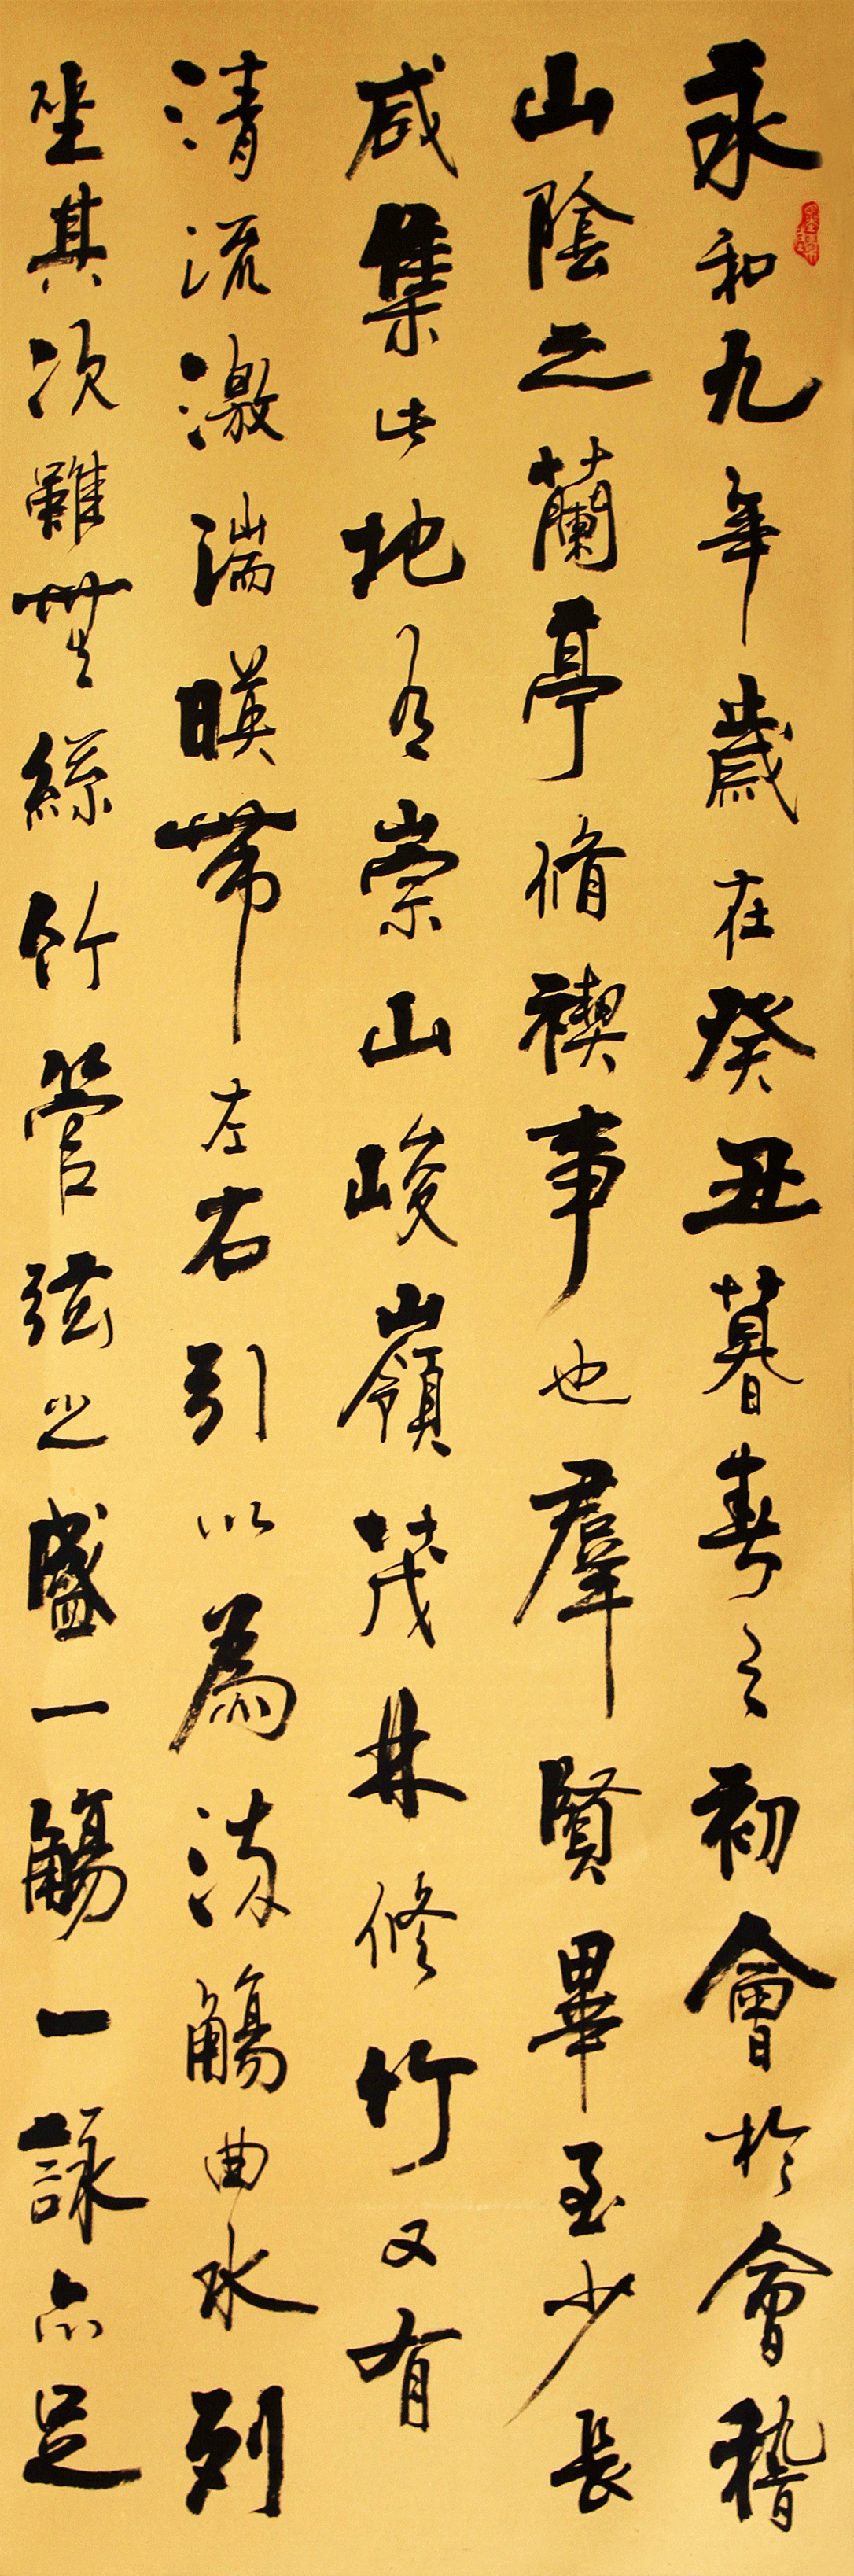 永和九年歲在癸丑暮春之初會於會稽
山陰之蘭亭脩禊事也羣賢畢至少長
咸集此地有崇山峻嶺茂林修竹又有
清流激湍暎帶左右引以為流觴曲水列
坐其次雖無絲竹管弦之盛一觴一詠亦足